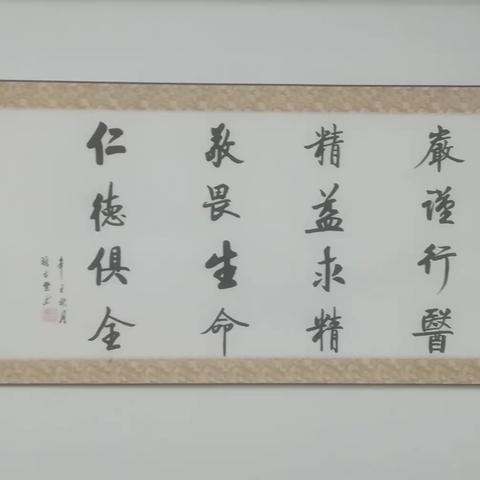 嚴謹行醫
精益求精
敬畏生命
仁德俱全